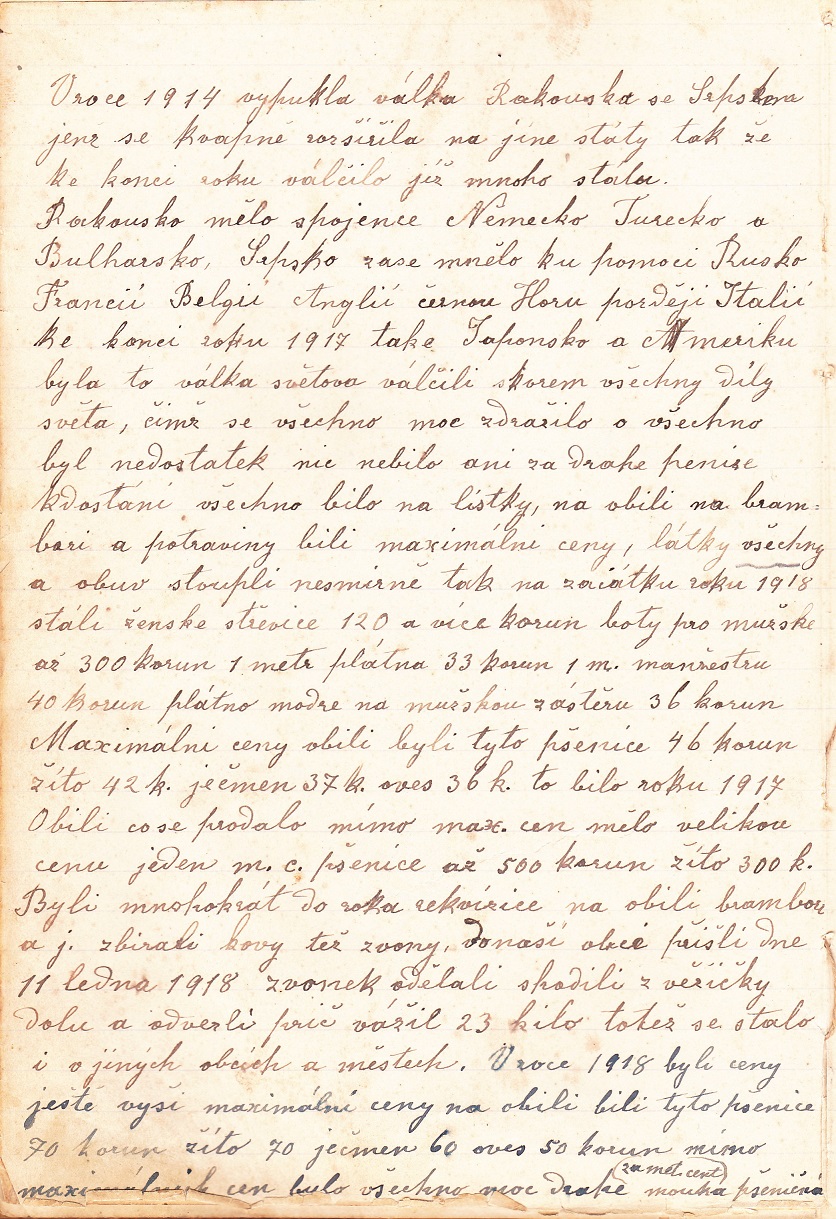 Vroce 1914 vypukla válka Rakouska se Srpskem
jenž se kvapně rozšířila na jine státy tak že
ke konci roku válčilo již mnoho státu.
Rakousko mělo spojence Německo Turecko a
Bulharsko, Srpsko zase mnělo ku pomoci Rusko
Francii Belgii Anglii černou Horu později Italii
ke konci roku 1917 take Japonsko a Ameriku
byla to válka světova válčili skorem všechny díly
světa, čimž se všechno moc zdražilo o všechno
byl nedostatek nic nebilo ani za drahe penize
kdostání všechno bilo na lístky, na obili na bram=
bori a potraviny bili maximálni ceny, látky všechny
a obuv stoupli nesmírně tak na začátku roku 1918
stáli ženske střevice 120 a více korun boty pro mužske
až 300 korun 1 metr plátna 33 korun 1 m. manžestru
40 korun plátno modre na mužskou zástěru 36 korun
Maximálni ceny obili byli tyto pšenice 46 korun
žíto 42 k. ječmen 37 k. oves 36 k. to bilo roku 1917
Obili co se prodalo mímo max. cen mělo velikou
cenu jeden m. c. pšenice až 500 korun žíto 300 k.
Byli mnohokrát do roka rekvírice na obili brambore
a j. zbirali kovy též zvony, donaší obce přišli dne
11 ledna 1918 zvonek odělali shodili z věžičky
dolu a odvezli prič vážil 23 kilo totež se stalo
i v jiných obcích a městech. Vroce 1918 byli ceny
ještě vyší maximální ceny na obili bili tyto pšenice
70 korun žíto 70 ječmen 60 oves 50 korun mimo
maximálnich cen bulo všechno moc drahé (za met. cent) mouka pšeničná